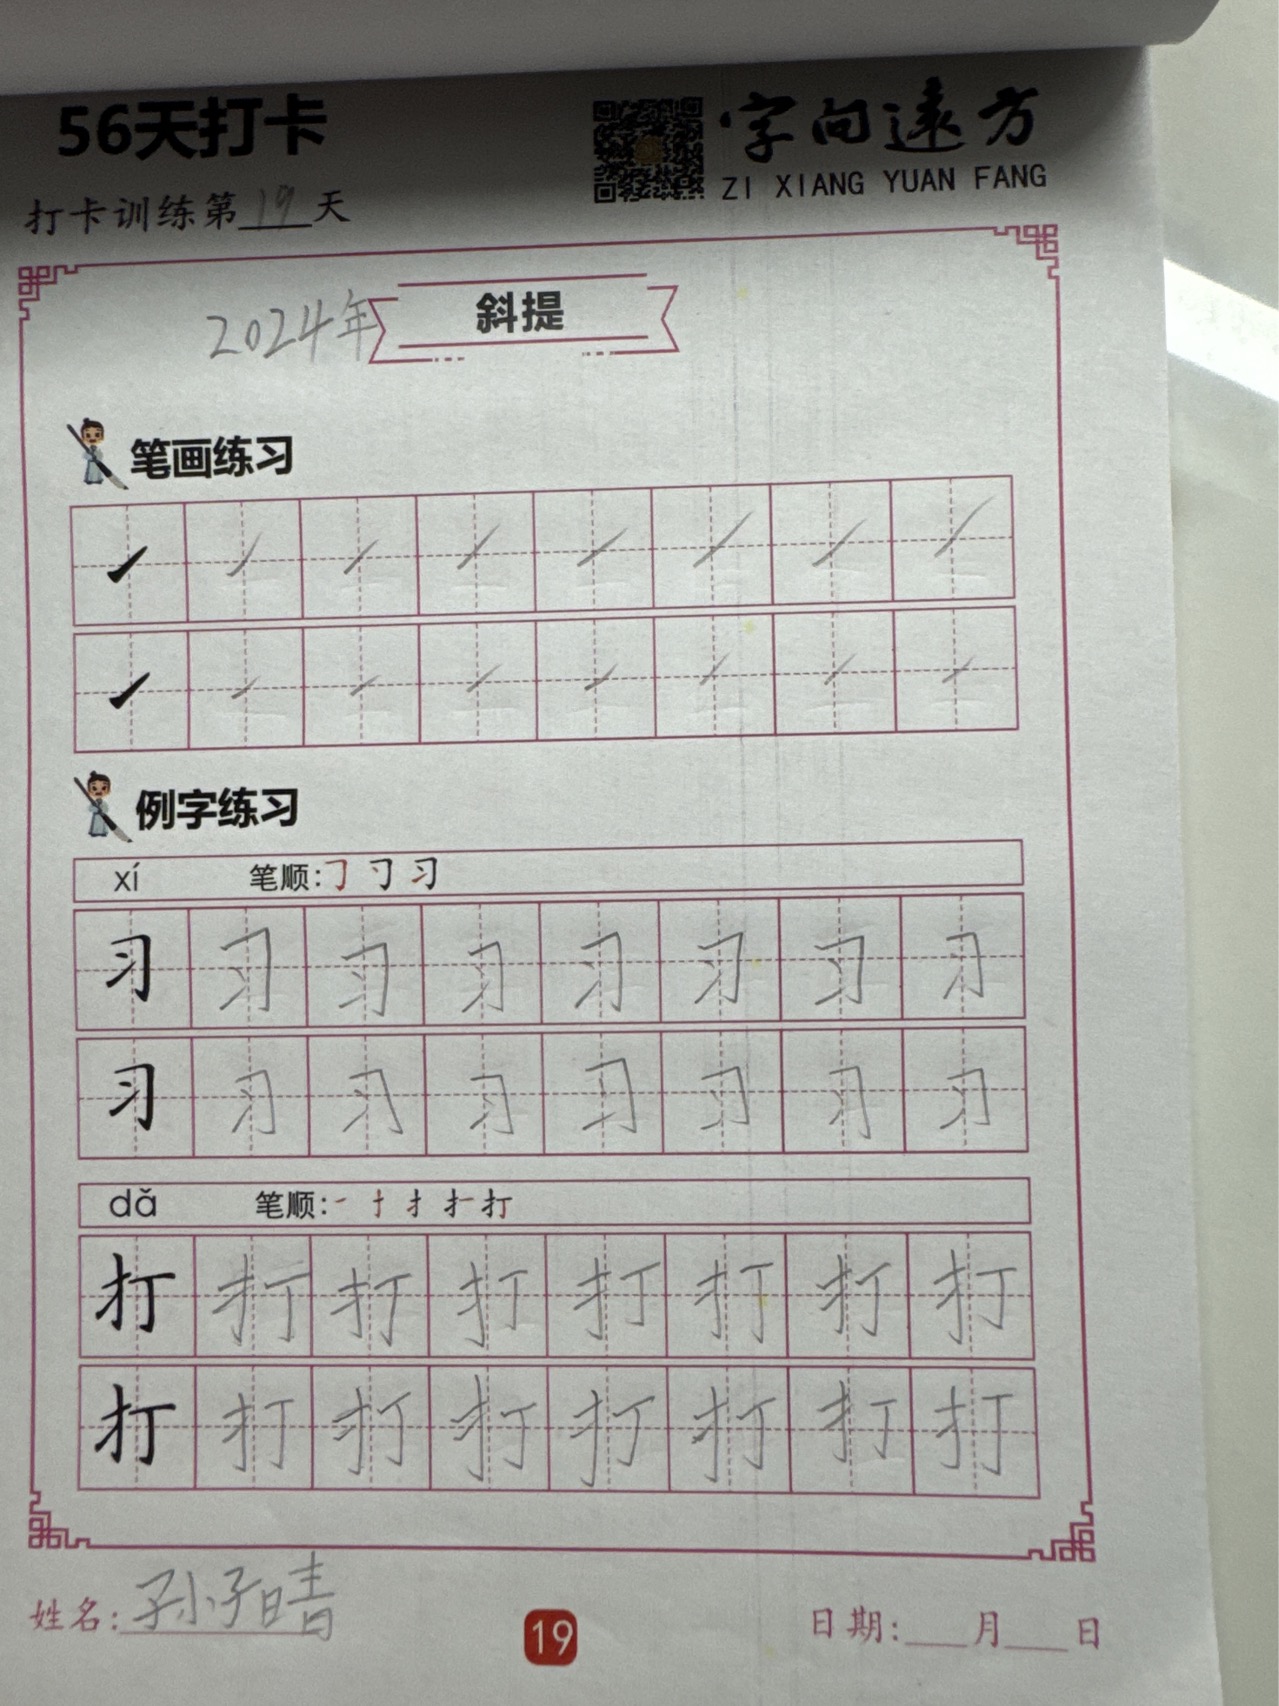 56天打卡
字向远方
ZI XIANG YUAN FANG
打卡训练第19天
2024年
斜提
笔画练习
例字练习
xí 笔顺:㇆ 刁 习
习 习 习 习 习 习 习 习
习 习 习 习 习 习 习 习
dǎ 笔顺:一 扌 打
打 打 打 打 打 打 打 打
打 打 打 打 打 打 打 打
姓名:孙子晴
19
日期:___月___日